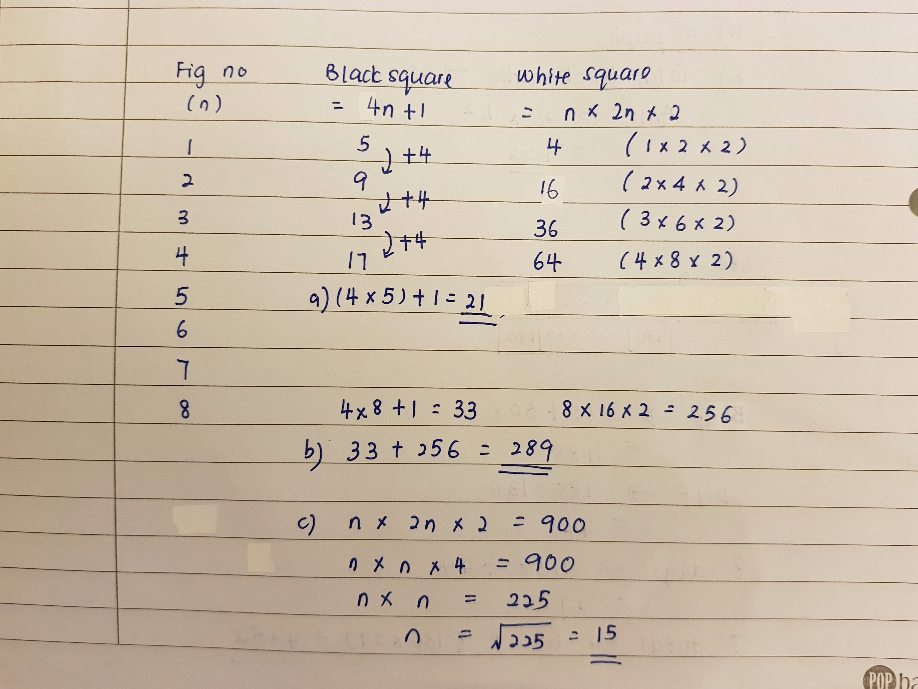 Fig no Black square White square
(n) = 4n +1 = n x 2n x 2
1 5 +4 4 (1 x 2 x 2)
2 9 +4 16 (2 x 4 x 2)
3 13 +4 36 (3 x 6 x 2)
4 17 64 (4 x 8 x 2)
5 a) (4 x 5) + 1 = 21
6
7
8 4 x 8 + 1 = 33 8 x 16 x 2 = 256
b) 33 + 256 = 289
c) n x 2n x 2 = 900
n x n x 4 = 900
n x n = 225
n = √225 = 15
POP ba